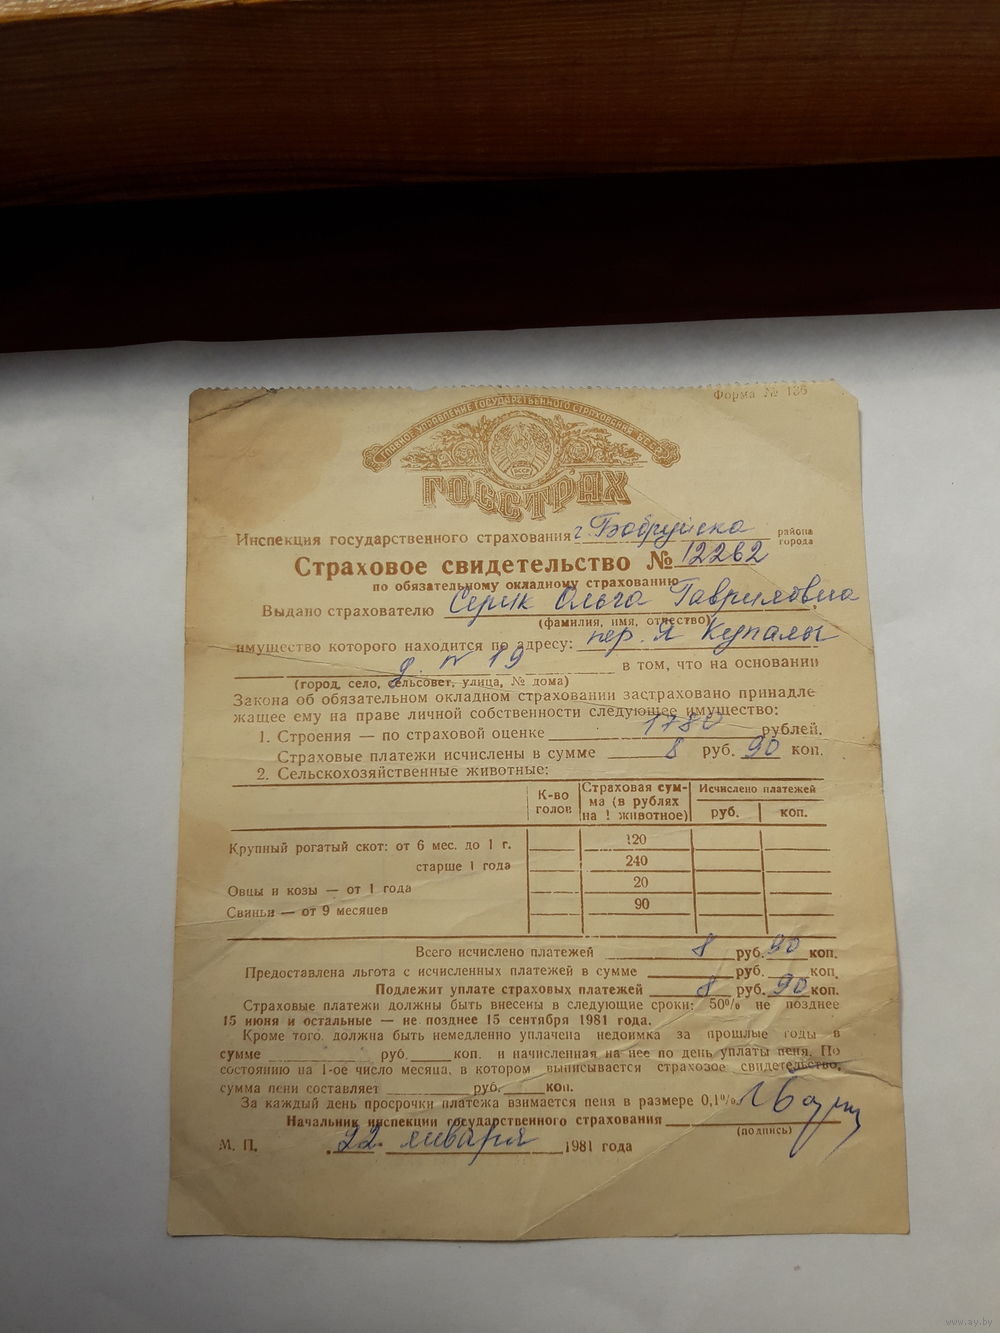 Форма № 136
ГЛАВНОЕ УПРАВЛЕНИЕ ГОСУДАРСТВЕННОГО СТРАХОВАНИЯ БССР
БССР
ГОССТРАХ
Инспекция государственного страхования г. Бобруйска района
города
Страховое свидетельство № 12262
по обязательному окладному страхованию
Выдано страхователю Серик Ольга Гавриловна,
(фамилия, имя, отчество)
имущество которого находится по адресу: пер. Я Купалы
д. № 19 в том, что на основании
(город, село, сельсовет, улица, № дома)
Закона об обязательном окладном страховании застраховано принадле
жащее ему на праве личной собственности следующее имущество:
1. Строения — по страховой оценке 1780 рублей.
Страховые платежи исчислены в сумме 8 руб. 90 коп.
2. Сельскохозяйственные животные:
К-во голов Страховая сум-ма (в рублях на 1 животное) Исчислено платежей
руб. коп.
Крупный рогатый скот: от 6 мес. до 1 г. 120
старше 1 года 240
Овцы и козы — от 1 года 20
Свиньи — от 9 месяцев 90
Всего исчислено платежей 8 руб. 90 коп.
Предоставлена льгота с исчисленных платежей в сумме руб. коп.
Подлежит уплате страховых платежей 8 руб. 90 коп.
Страховые платежи должны быть внесены в следующие сроки: 50% не позднее
15 июня и остальные — не позднее 15 сентября 1981 года.
Кроме того, должна быть немедленно уплачена недоимка за прошлые годы в
сумме руб. коп. и начисленная на нее по день уплаты пеня. По
состоянию на 1-ое число месяца, в котором выписывается страховое свидетельство,
сумма пени составляет руб. коп.
За каждый день просрочки платежа взимается пеня в размере 0,1%.
Начальник инспекции государственного страхования
(подпись)
М. П. 22 января 1981 года
www.ay.by